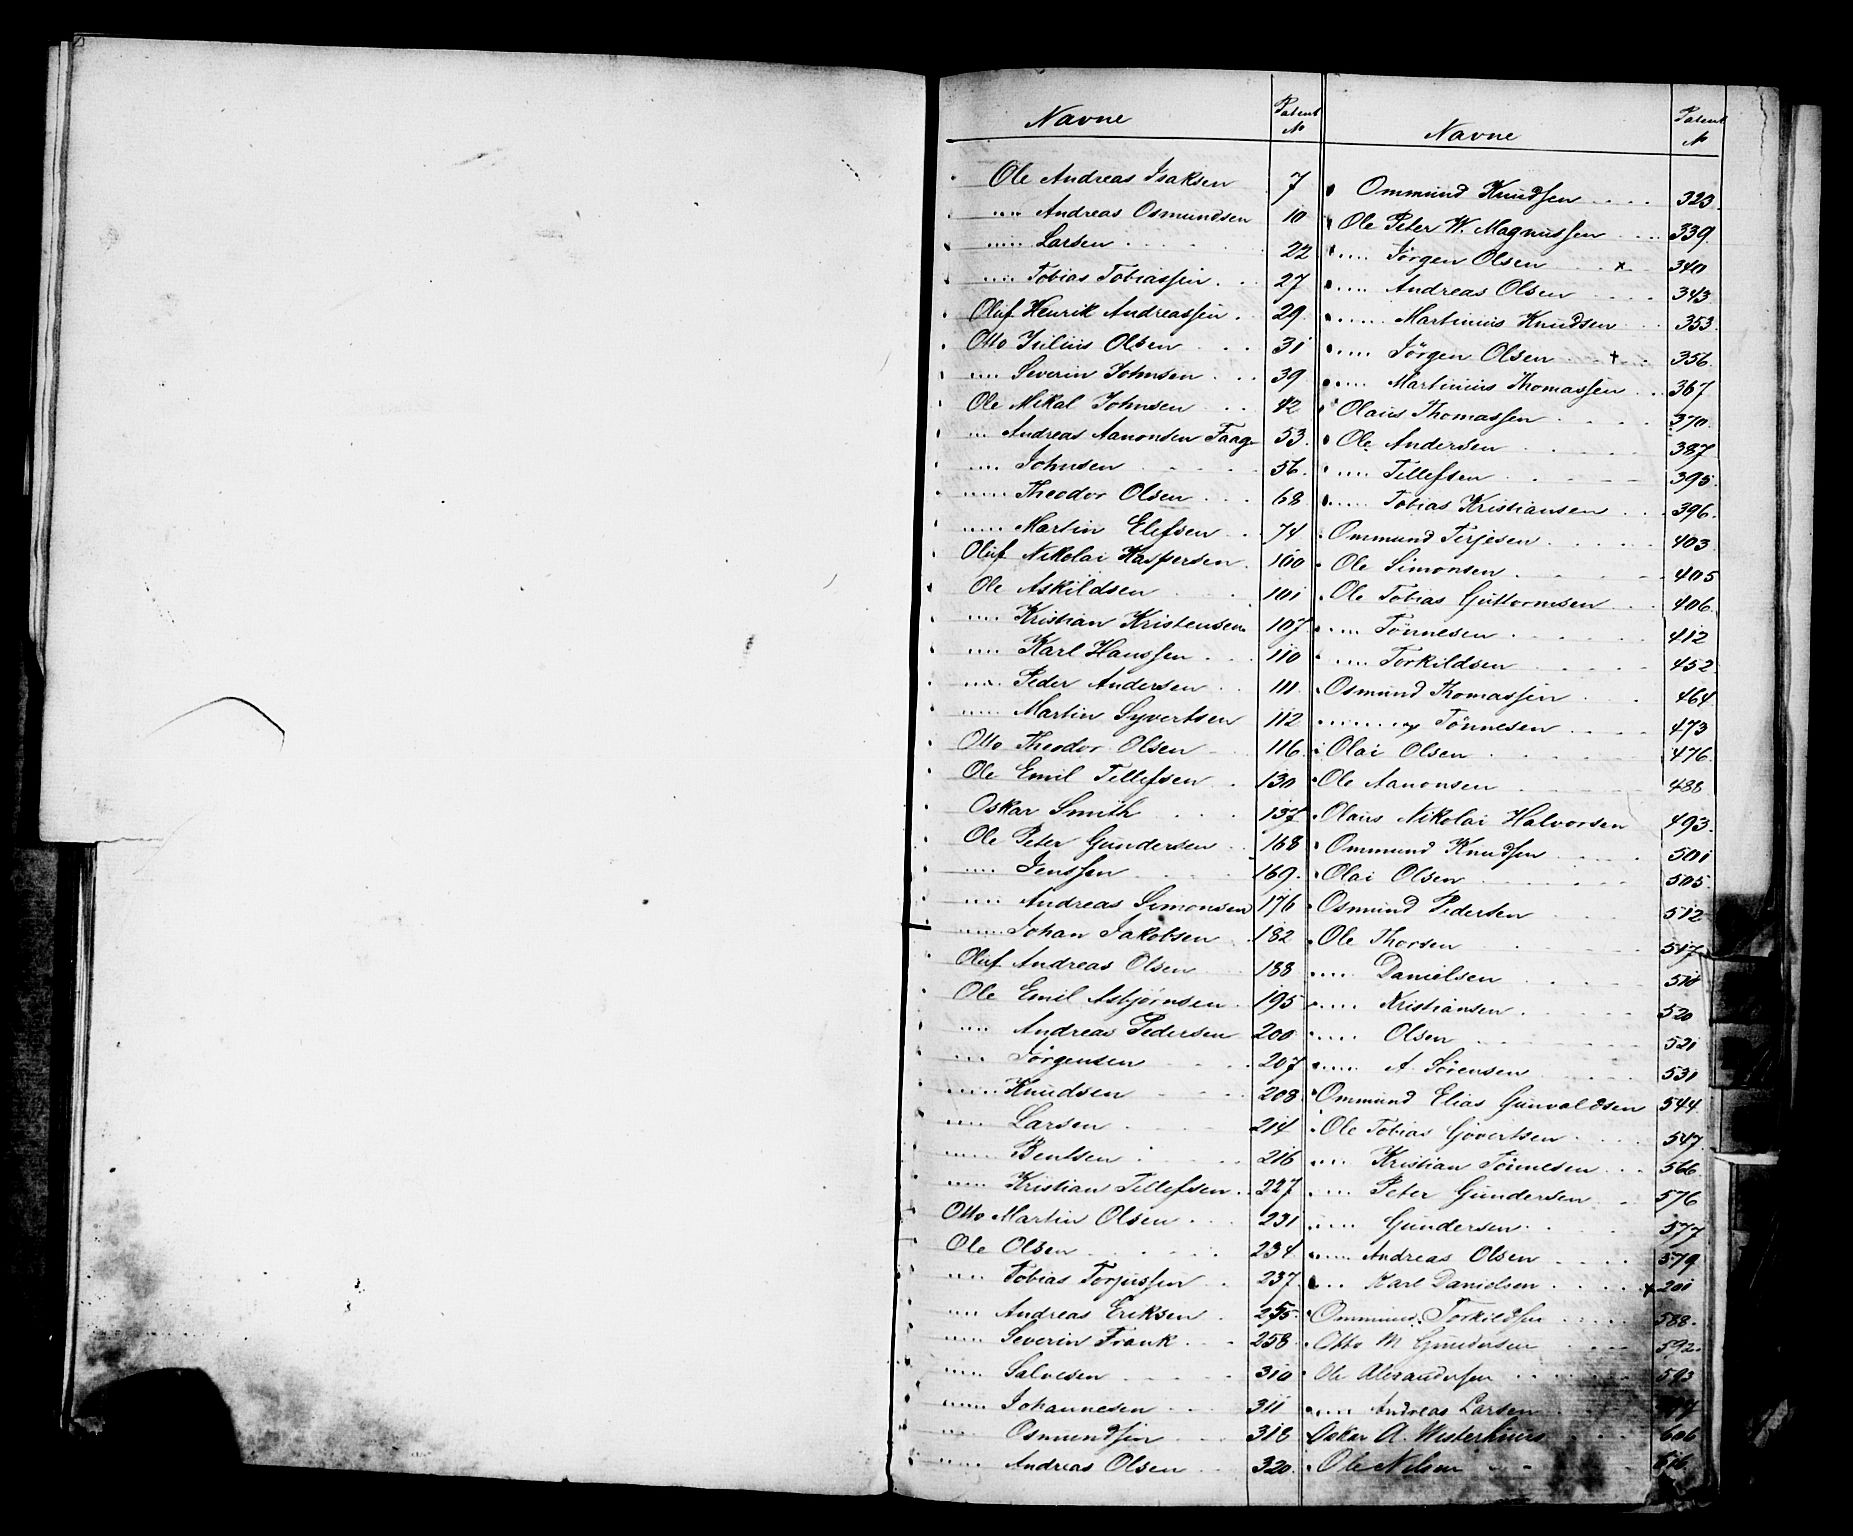 Navne Patent No
Ole Andreas Isaksen 7
" Andreas Osmundsen 10
" Larsen 22
" Tobias Tobiassen 27
Oluf Henrik Andreassen 29
Otto Julius Olsen 31
" Severin Johnsen 39
Ole Mikal Johnsen 42
" Andreas Aanonsen Faage 53
" Johnsen 56
" Theodor Olsen 68
" Martin Elefsen 74
Oluf Nikolai Kaspersen 100
Ole Askildsen 101
" Kristian Kristensen 107
" Karl Hanssen 110
" Peder Andersen 111
" Martin Syvertsen 112
Otto Theodor Olsen 116
Ole Emil Tellefsen 130
Oskar Smith 137
Ole Peter Gundersen 168
" Jenssen 169
" Andreas Simonsen 176
" Johan Jakobsen 182
Oluf Andreas Olsen 188
Ole Emil Asbjørnsen 195
" Andreas Pedersen 200
" Jørgensen 207
" Knudsen 208
" Larsen 214
" Bentsen 216
" Kristian Tellefsen 227
Otto Martin Olsen 231
Ole Olsen 234
" Tobias Torjussen 237
" Andreas Eriksen 255
" Severin Frank 258
" Salvesen 310
" Johannesen 311
" Osmundsen 318
" Andreas Olsen 320
Navne Patent No
Ommund Knudsen 323
Ole Peter W. Magnussen 339
" Jørgen Olsen x 340
" Andreas Olsen 343
" Martinius Knudsen 353
" Jørgen Olsen + 356
" Martinius Thomassen 367
Olaus Thomassen 370
Ole Andersen 387
" Tellefsen 395
" Tobias Kristiansen 396
Ommund Terjesen 403
Ole Simonsen 405
Ole Tobias Guttormsen 406
" Tønnesen 412
" Torkildsen 452
Osmund Thomassen 464
" Tønnesen 473
Olai Olsen 476
Ole Aanonsen 488
Olaus Nikolai Halvorsen 493
Ommund Knudsen 501
Olai Olsen 505
Osmund Pedersen 512
Ole Thorsen 517
" Danielsen 518
" Kristiansen 520
" Olsen 521
" A. Sørensen 531
Ommund Elias Gunvaldsen 544
Ole Tobias Govertsen 547
" Kristian Tønnesen 566
" Peter Gundersen 576
" Gundersen 577
" Andreas Olsen 579
" Karl Danielsen x 201
Ommund Torkildsen 588
Otto M Gundersen 592
Ole Alexandersen 593
" Andreas Larsen
Oskar A. Westerhuus 606
Ole Nilsen 616